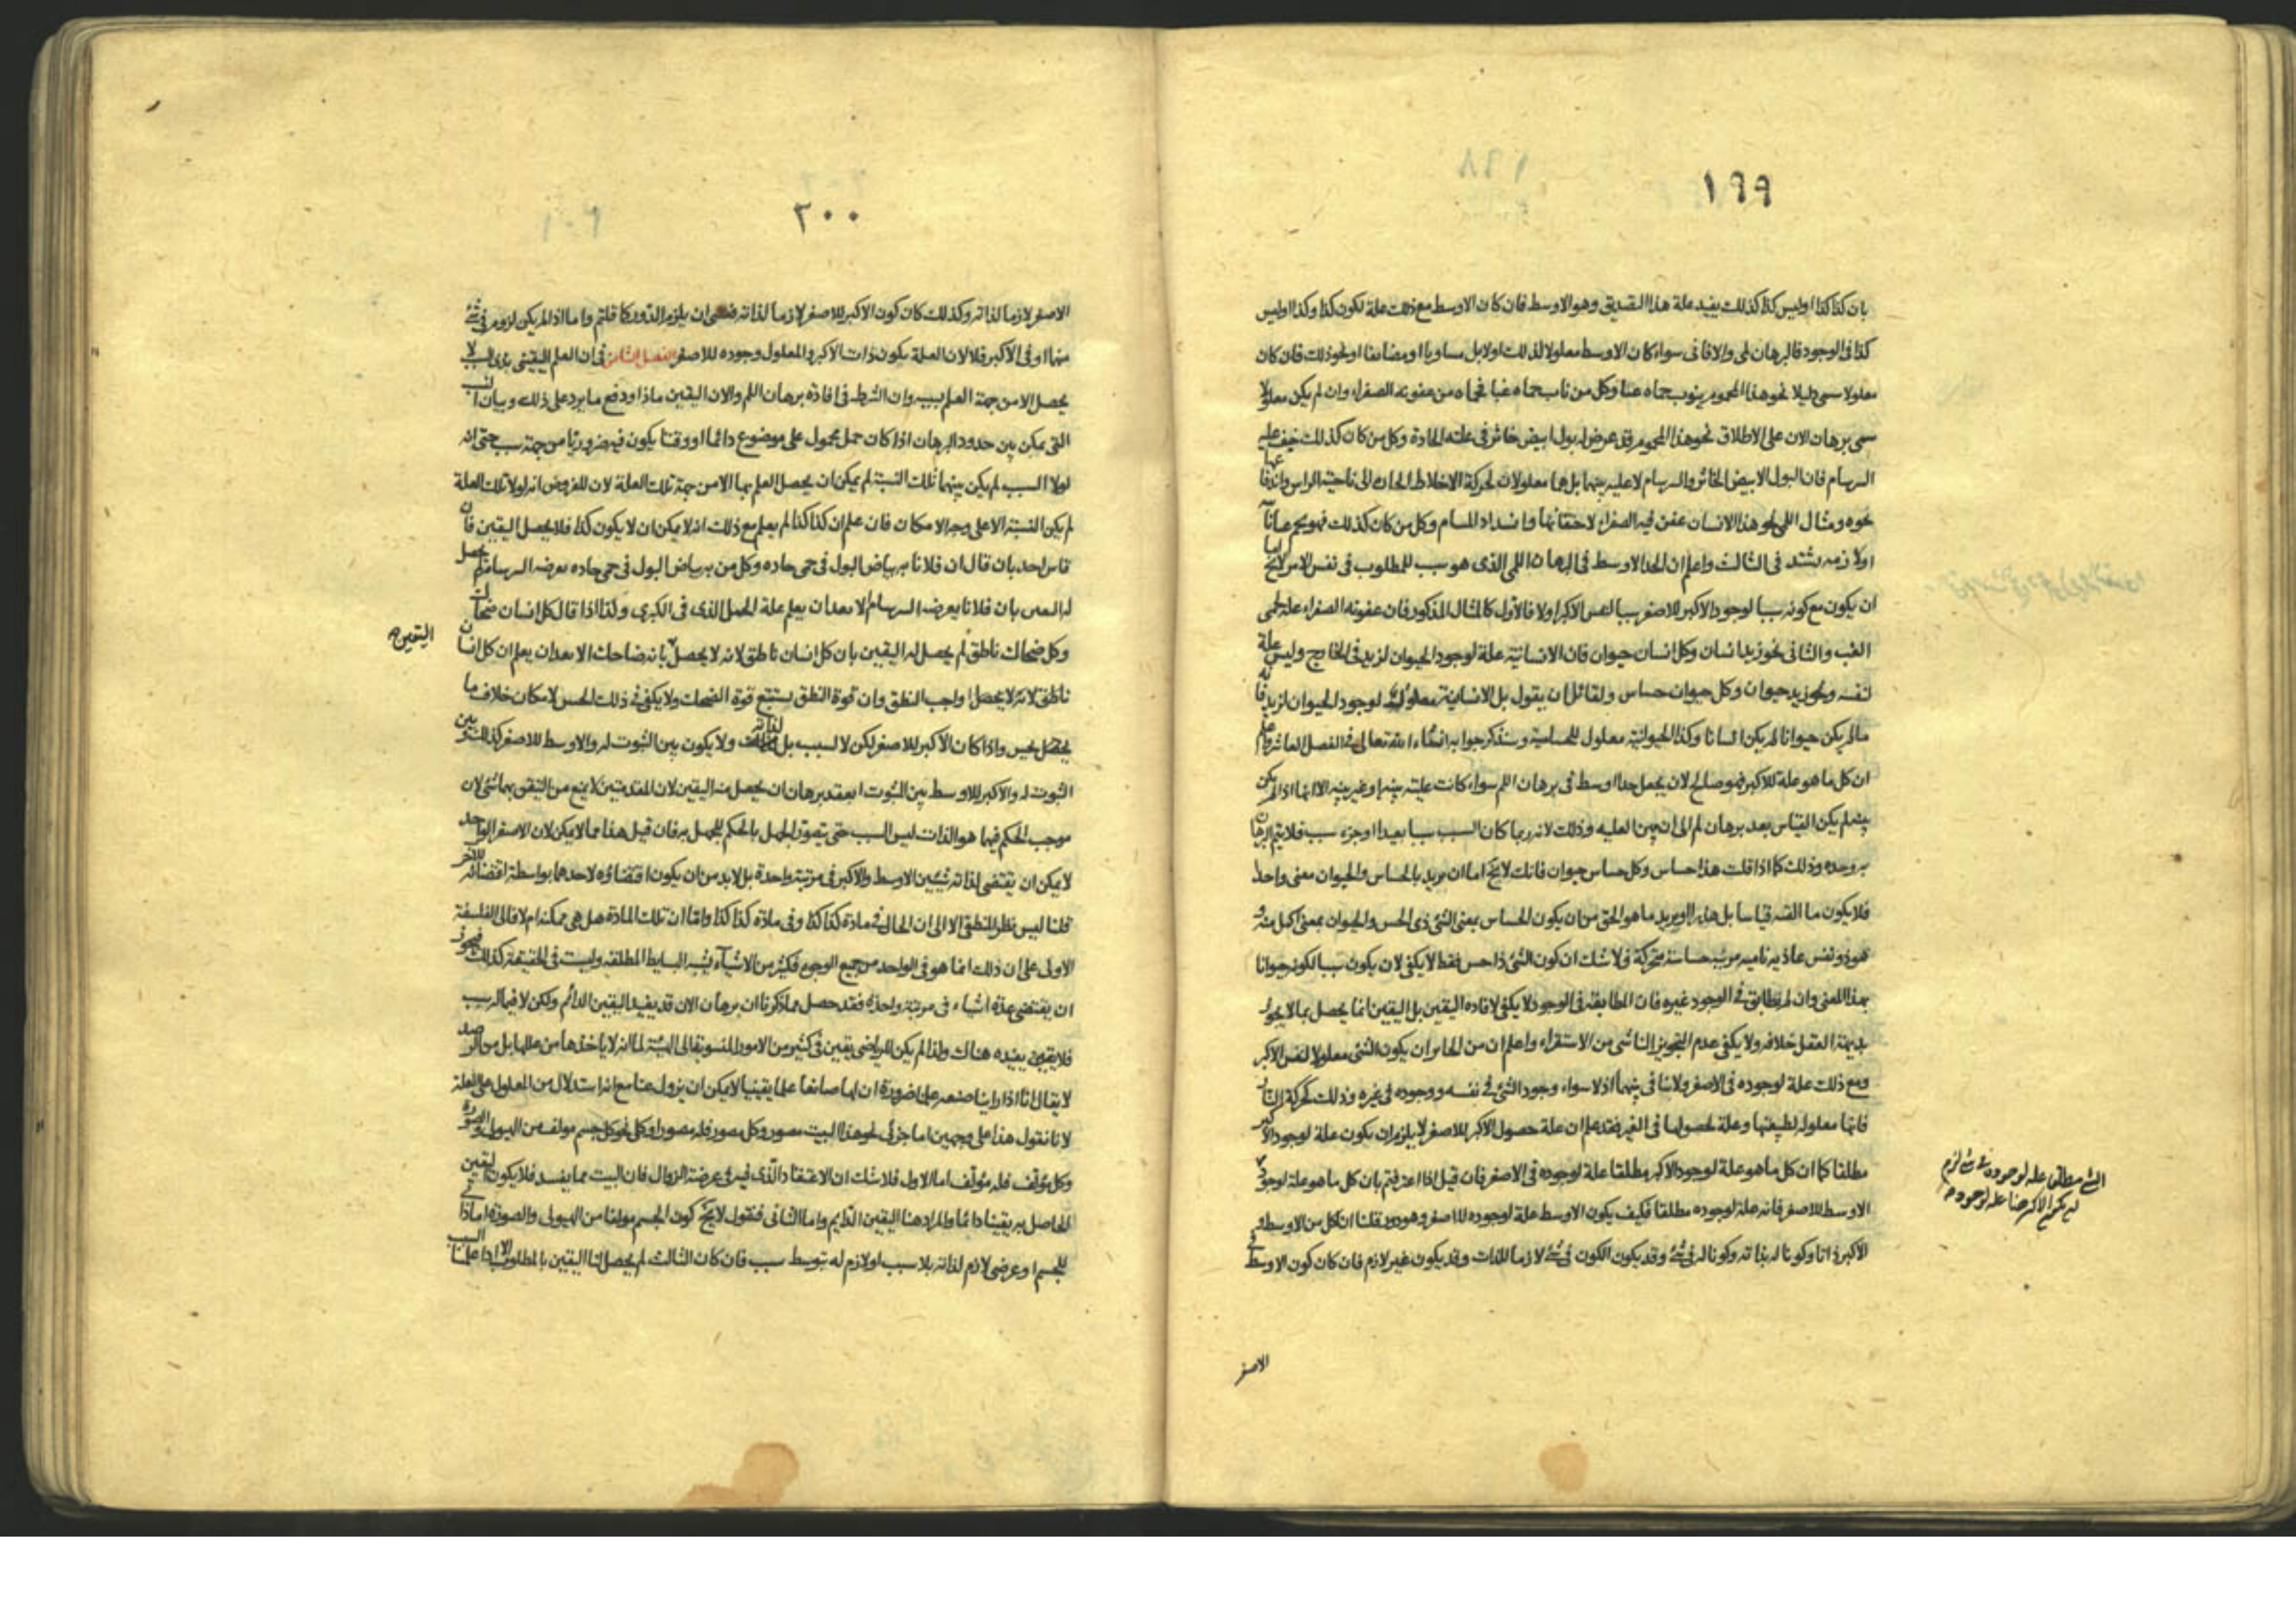 ١٩٩
بان كذا كذا او ليس كذا كذلك يفيد علة هذا التصديق وهو الاوسط فان كان الاوسط مع ذلك علة لكون كذا وكذا او ليس
كذا فى الوجود فالبرهان لمى والا فانى سواء كان الاوسط معلولا لذلك اولا بل مساويا او مضايفا او نحو ذلك فان كان
معلولا سمى دليلا نحو هذا المحموم ينوب حماه غبا وكل من ناب حماه غبا فحماه من عفونه الصفراء وان لم يكن معلولا
سمى برهان الان على الاطلاق نحو هذا المحموم قد عرض له بول ابيض خاثر فى علته الحادة وكل من كان كذلك خيف عليه
السرسام فان البول الابيض الخاثر والسرسام لا عليه بينهما بل هما معلولان لحركة الاخلاط الحاده الى ناحية الراس واندفاعها
نحوه ومثال اللمى نحو هذا الانسان عفن فيه الصفراء لاحتقانها وانسداد المسام وكل من كان كذلك فهو يحم غبا
اولازمه يشتد فى الثالث واعلم ان الحد الاوسط فى البرهان اللمى الذى هو سبب للمطلوب فى نفس الامر لا يخ اما
ان يكون مع كونه سببا لوجود الاكبر للاصغر سببا لنفس الاكبر اولا فالاول كالمثال المذكور فان عفونه الصفراء علة لحمى
الغب والثانى نحو زيد انسان وكل انسان حيوان فان الانسانية علة لوجود الحيوان لزيد فى الخارج وليس علة
لنفسه ونحو زيد حيوان وكل حيوان حساس ولقائل ان يقول بل الانسانية معلولة لوجود الحيوان لزيد فانه
مالم يكن حيوانا لم يكن انسانا وكذا الحيوانية معلول للحساسية وسنذكر جوابه انشاء الله تعالى فى الفصل العاشر واعلم
ان كل ما هو علة للاكبر فهو صالح لان يجعل حدا اوسط فى برهان اللم سواء كانت عليته بينه او غير بينه الا انها اذا لم يكن
بينه لم يكن القياس بعد برهان لم الى ان يبين العليه وذلك لانه ربما كان السبب سببا بعيدا او جزء سبب فلا يتم البرهان
به وحده وذلك كما اذا قلت هذا حساس وكل حساس حيوان فانك لا يخ اما ان تريد بالحساس والحيوان معنى واحدا
فلا يكون ما الفته قياسا بل هذرا او يريد ما هو الحق من ان يكون الحساس بمعنى الشئ ذى الحس والحيوان بمعنى اكمل منه و
هو ذو نفس غاذيه ناميه مولده حساسة متحركة فلا شك ان كون الشئ ذا حس فقط لا يكفى لان يكون سببا لكونه حيوانا
بهذا المعنى وان لم يطابق فى الوجود غيره فان المطابقة فى الوجود لا يكفى لافاده اليقين بل اليقين انما يحصل بما لا يجوز
بديهة العقل خلافه ولا يكفى عدم التجويز الناشى من الاستقراء واعلم ان من الجائز ان يكون الشئ معلولا لنفس الاكبر
ومع ذلك علة لوجوده فى الاصغر ولا تنافى بينهما اذ لا سواء وجود الشئ فى نفسه ووجوده فى غيره وذلك كحركة النار
فانها معلوله لطبيعتها وعلة لحصولها فى الغير فقد علم ان علة حصول الاكبر للاصغر لا يلزم ان يكون علة لوجود الاكبر
مطلقا كما ان كل ما هو علة لوجود الاكبر مطلقا علة لوجوده فى الاصغر فان قيل اذا اعترفتم بان كل ما هو علة لوجود
الاوسط للاصغر فانه علة لوجوده مطلقا فكيف يكون الاوسط علة لوجوده للاصغر وهو دور قلنا ان لكل من الاوسط و
الاكبر ذاتا وكونا له بذاته وكونا له فى شئ وقد يكون الكون فى شئ لازما للذات وقد يكون غير لازم فان كان كون الاوسط فى
الاصغر
٢٠٠
الاصغر لازما لذاته وكذلك كان كون الاكبر للاصغر لازما لذاته فعسى ان يلزم الدور كما قلتم واما اذا لم يكن لزوم فى شئ
منهما او فى الاكبر فلا لان العلة يكون ذات الاكبر والمعلول وجوده للاصغر الفصل الثامن فى ان العلم اليقينى بذى السبب لا
يحصل الا من جهة العلم بسببه وان الشرط فى افادة برهان اللم والان اليقين ماذا ودفع ما يرد على ذلك وبيان النسب
التى يمكن بين حدود البرهان اذا كان حمل محمول على موضوع دائما او وقتا يكون فيه ضروريا من جهة سبب حتى انه
لولا السبب لم يكن بينهما تلك النسبة لم يمكن ان يحصل العلم بها الا من جهة تلك العلة لان المفروض انه لولا تلك العلة
لم يكن النسبة الا على وجه الامكان فان علم ان كذا كذا لم يعلم مع ذلك انه لا يمكن ان لا يكون كذا فلا يحصل اليقين فان
قاس احد بان قال ان فلانا به بياض البول فى حمى حاده وكل من به بياض البول فى حمى حاده يعرضه السرسام لم يحصل
له اليقين بان فلانا يعرضه السرسام الا بعد ان يعلم علة الحمل الذى فى الكبرى وكذا اذا قال كل انسان ضحاك
وكل ضحاك ناطق لم يحصل له اليقين بان كل انسان ناطق لانه لا يحصل بانه ضاحك الا بعد ان يعلم ان كل انسان
اليقين صح
ناطق لانه لا يحصل واجب النطق وان قوة النطق يستتبع قوة الضحك ولا يكفى فى ذلك الحس لامكان خلاف ما
يحصل بحس واذا كان الاكبر للاصغر لكن لا لسبب بل لذاته ولا يكون بين الثبوت له والاوسط للاصغر كذلك بين
الثبوت له والاكبر للاوسط بين الثبوت انعقد برهان ان يحصل منه اليقين لان المقدمتين لا يمنع من التيقن بهما شئ لان
موجب الحكم فيهما هو الذات ليس السبب حتى يتصور الجهل بالحكم للجهل به فان قيل هذا مما لا يمكن لان الاصغر الواحد
لا يمكن ان يقتضى لذاته شيئين الاوسط والاكبر فى مرتبة واحدة بل لابد من ان يكون اقتضاؤه لاحدهما بواسطة اقتضائه للاخر
قلنا ليس نظر المنطقى الا الى ان الحال فى مادة كذا كذا وفى مادة كذا كذا واما ان تلك المادة هل هى ممكنة ام لا فالى الفلسفة
الاولى على ان ذلك انما هو فى الواحد من جميع الوجوه فكثير من الاشياء يشبه البسايط المطلقه وليست فى الحقيقة كذلك فيجوز
ان يقتضى عدة اشياء فى مرتبة واحدة فقد حصل مما ذكرنا ان برهان الان قد يفيد اليقين الدائم ولكن لا فيما له سبب
فلا يقين يفيده هناك ولذا لم يكن للرياضى يقين فى كثير من الامور المنسوبة الى الهيئة لما انه لا ياخذها من عللها بل من الرصد
لا يقال انا اذا راينا صنعه علمنا ضرورة ان لها صانعا علما يقينيا لا يمكن ان يزول عنا مع انه استدلال من المعلول على العلة
لانا نقول هذا على وجهين اما جزئى نحو هذا البيت مصور وكل مصور فله مصور او كلى نحو كل جسم مولف من الهيولى والصورة
وكل مؤلف فله مؤلف اما الاول فلا شك ان الاعتقاد الذى فيه فى عرضة الزوال فان البيت مما يفسد فلا يكون اليقين
الحاصل به يقينا دائما والمراد هنا اليقين الدايم واما الثانى فنقول لا يخ كون الجسم مولفا من الهيولى والصورة اما ذاتى
للجسم او عرضى لازم لذاته بلا سبب او لازم له بتوسط سبب فان كان الثالث لم يحصل لنا اليقين بالمطلوب الا اذا علمنا السبب